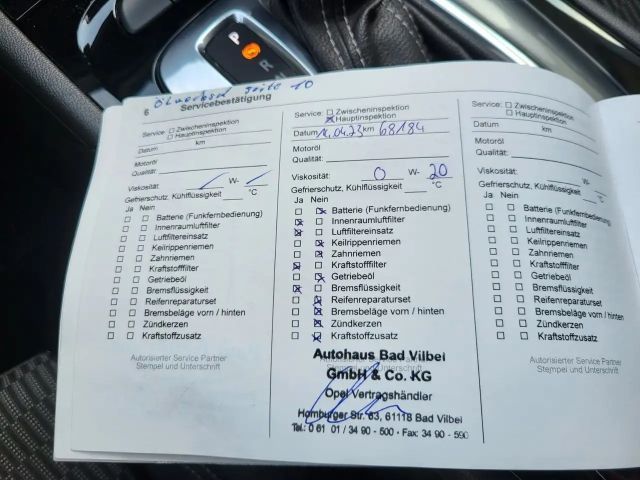 P
R
6 Ölwechsel Seite 10
Servicebestätigung
Service: Zwischeninspektion
Hauptinspektion
Datum km
Motoröl
Qualität:
Viskosität: W-
Gefrierschutz, Kühlflüssigkeit °C
Ja Nein
Batterie (Funkfernbedienung)
Innenraumluftfilter
Luftfiltereinsatz
Keilrippenriemen
Zahnriemen
Kraftstofffilter
Getriebeöl
Bremsflüssigkeit
Reifenreparaturset
Bremsbeläge vorn / hinten
Zündkerzen
Kraftstoffzusatz
Autorisierter Service Partner
Stempel und Unterschrift
Service: Zwischeninspektion
Hauptinspektion
Datum 14.04.23 km 68184
Motoröl
Qualität:
Viskosität: 0 W- 20
Gefrierschutz, Kühlflüssigkeit °C
Ja Nein
Batterie (Funkfernbedienung)
Innenraumluftfilter
Luftfiltereinsatz
Keilrippenriemen
Zahnriemen
Kraftstofffilter
Getriebeöl
Bremsflüssigkeit
Reifenreparaturset
Bremsbeläge vorn / hinten
Zündkerzen
Kraftstoffzusatz
Autohaus Bad Vilbel
GmbH & Co. KG
Opel Vertragshändler
Homburger Str. 63, 61118 Bad Vilbel
Tel.: 0 61 01 / 34 90 - 500 · Fax: 34 90 - 590
Service: Zwischeninspektion
Hauptinspektion
Datum km
Motoröl
Qualität:
Viskosität: W-
Gefrierschutz, Kühlflüssigkeit °C
Ja Nein
Batterie (Funkfernbedienung)
Innenraumluftfilter
Luftfiltereinsatz
Keilrippenriemen
Zahnriemen
Kraftstofffilter
Getriebeöl
Bremsflüssigkeit
Reifenreparaturset
Bremsbeläge vorn / hinten
Zündkerzen
Kraftstoffzusatz
Autorisierter Service Partner
Stempel und Unterschrift